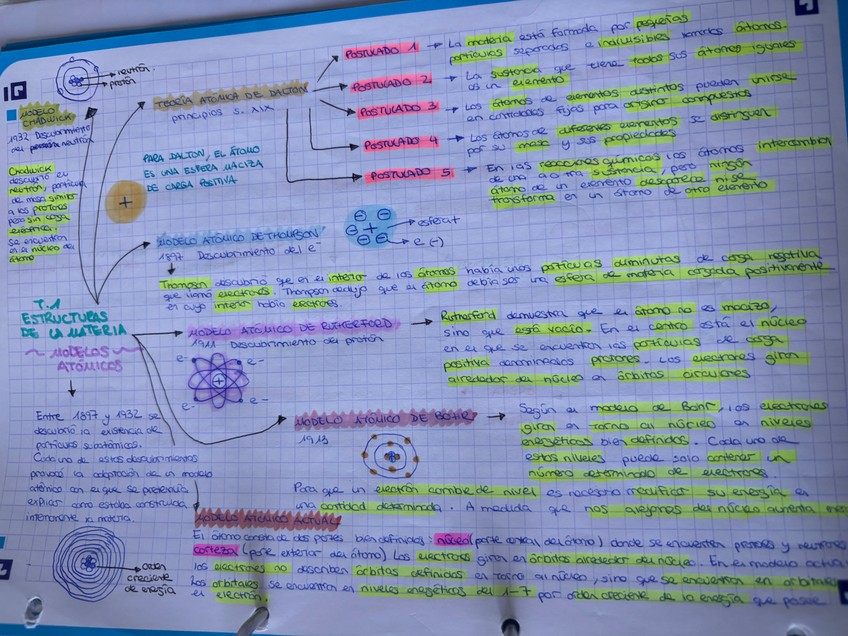 neutrón
protón
MODELO
CHADWICK
1932 Descubrimiento
del protón neutrón
Chadwick
descubrió el
neutrón, partícula
de masa similar
a los protones
pero sin carga
eléctrica.
Se encuentran
en el núcleo del
átomo
TEORÍA ATÓMICA DE DALTON
principios S. XIX
PARA DALTON, EL ÁTOMO
ES UNA ESFERA MACIZA
DE CARGA POSITIVA
+
POSTULADO 1 → La materia está formada por pequeñas
partículas separadas e indivisibles llamadas átomos.
POSTULADO 2 → La sustancia que tiene todos sus átomos iguales
es un elemento
POSTULADO 3 → Los átomos de elementos distintos pueden unirse
en cantidades fijas para originar compuestos
POSTULADO 4 → Los átomos de diferentes elementos se distinguen
por su masa y sus propiedades
POSTULADO 5 → En las reacciones químicas los átomos intercambian
de una a otra sustancia, pero ningún
átomo de un elemento desaparece ni se
transforma en un átomo de otro elemento
MODELO ATÓMICO DE THOMPSON
1897 Descubrimiento del e⁻
esfera +
e (-)
Thompson descubrió que en el interior de los átomos había unas partículas diminutas de carga negativa
que llamó electrones. Thompson dedujo que el átomo debía ser una esfera de materia cargada positivamente
en cuyo interior había electrones.
T.1
ESTRUCTURAS
DE LA MATERIA
~ MODELOS ~
ATÓMICOS
MODELO ATÓMICO DE RUTHERFORD
1911 Descubrimiento del protón
e⁻ e⁻
e⁻ e⁻
Rutherford demuestra que el átomo no es macizo,
sino que está vacío. En el centro está el núcleo
en el que se encuentran las partículas de carga
positiva denominadas protones. Los electrones giran
alrededor del núcleo en órbitas circulares
Entre 1897 y 1932 se
descubrió la existencia de
partículas subatómicas.
Cada uno de estos descubrimientos
provocó la adaptación de un modelo
atómico con el que se pretendía
explicar como estaba construida
interiormente la materia.
MODELO ATÓMICO DE BOHR
1913
Según el modelo de Bohr, los electrones
giran en torno al núcleo en niveles
energéticos bien definidos. Cada uno de
estos niveles puede solo contener un
número determinado de electrones
Para que un electrón cambie de nivel es necesario modificar su energía en
una cantidad determinada. A medida que nos alejamos del núcleo aumenta
MODELO ATÓMICO ACTUAL
El átomo consta de dos partes bien definidas: núcleo (parte central del átomo) donde se encuentran protones y neutrones
corteza (parte exterior del átomo) Los electrones giran en órbitas alrededor del núcleo. En el modelo actual
los electrones no describen órbitas definidas en torno al núcleo, sino que se encuentran en orbitales
Los orbitales se encuentran en niveles energéticos del 1-7 por orden creciente de la energía que posee
el electrón.
orden
creciente
de energía